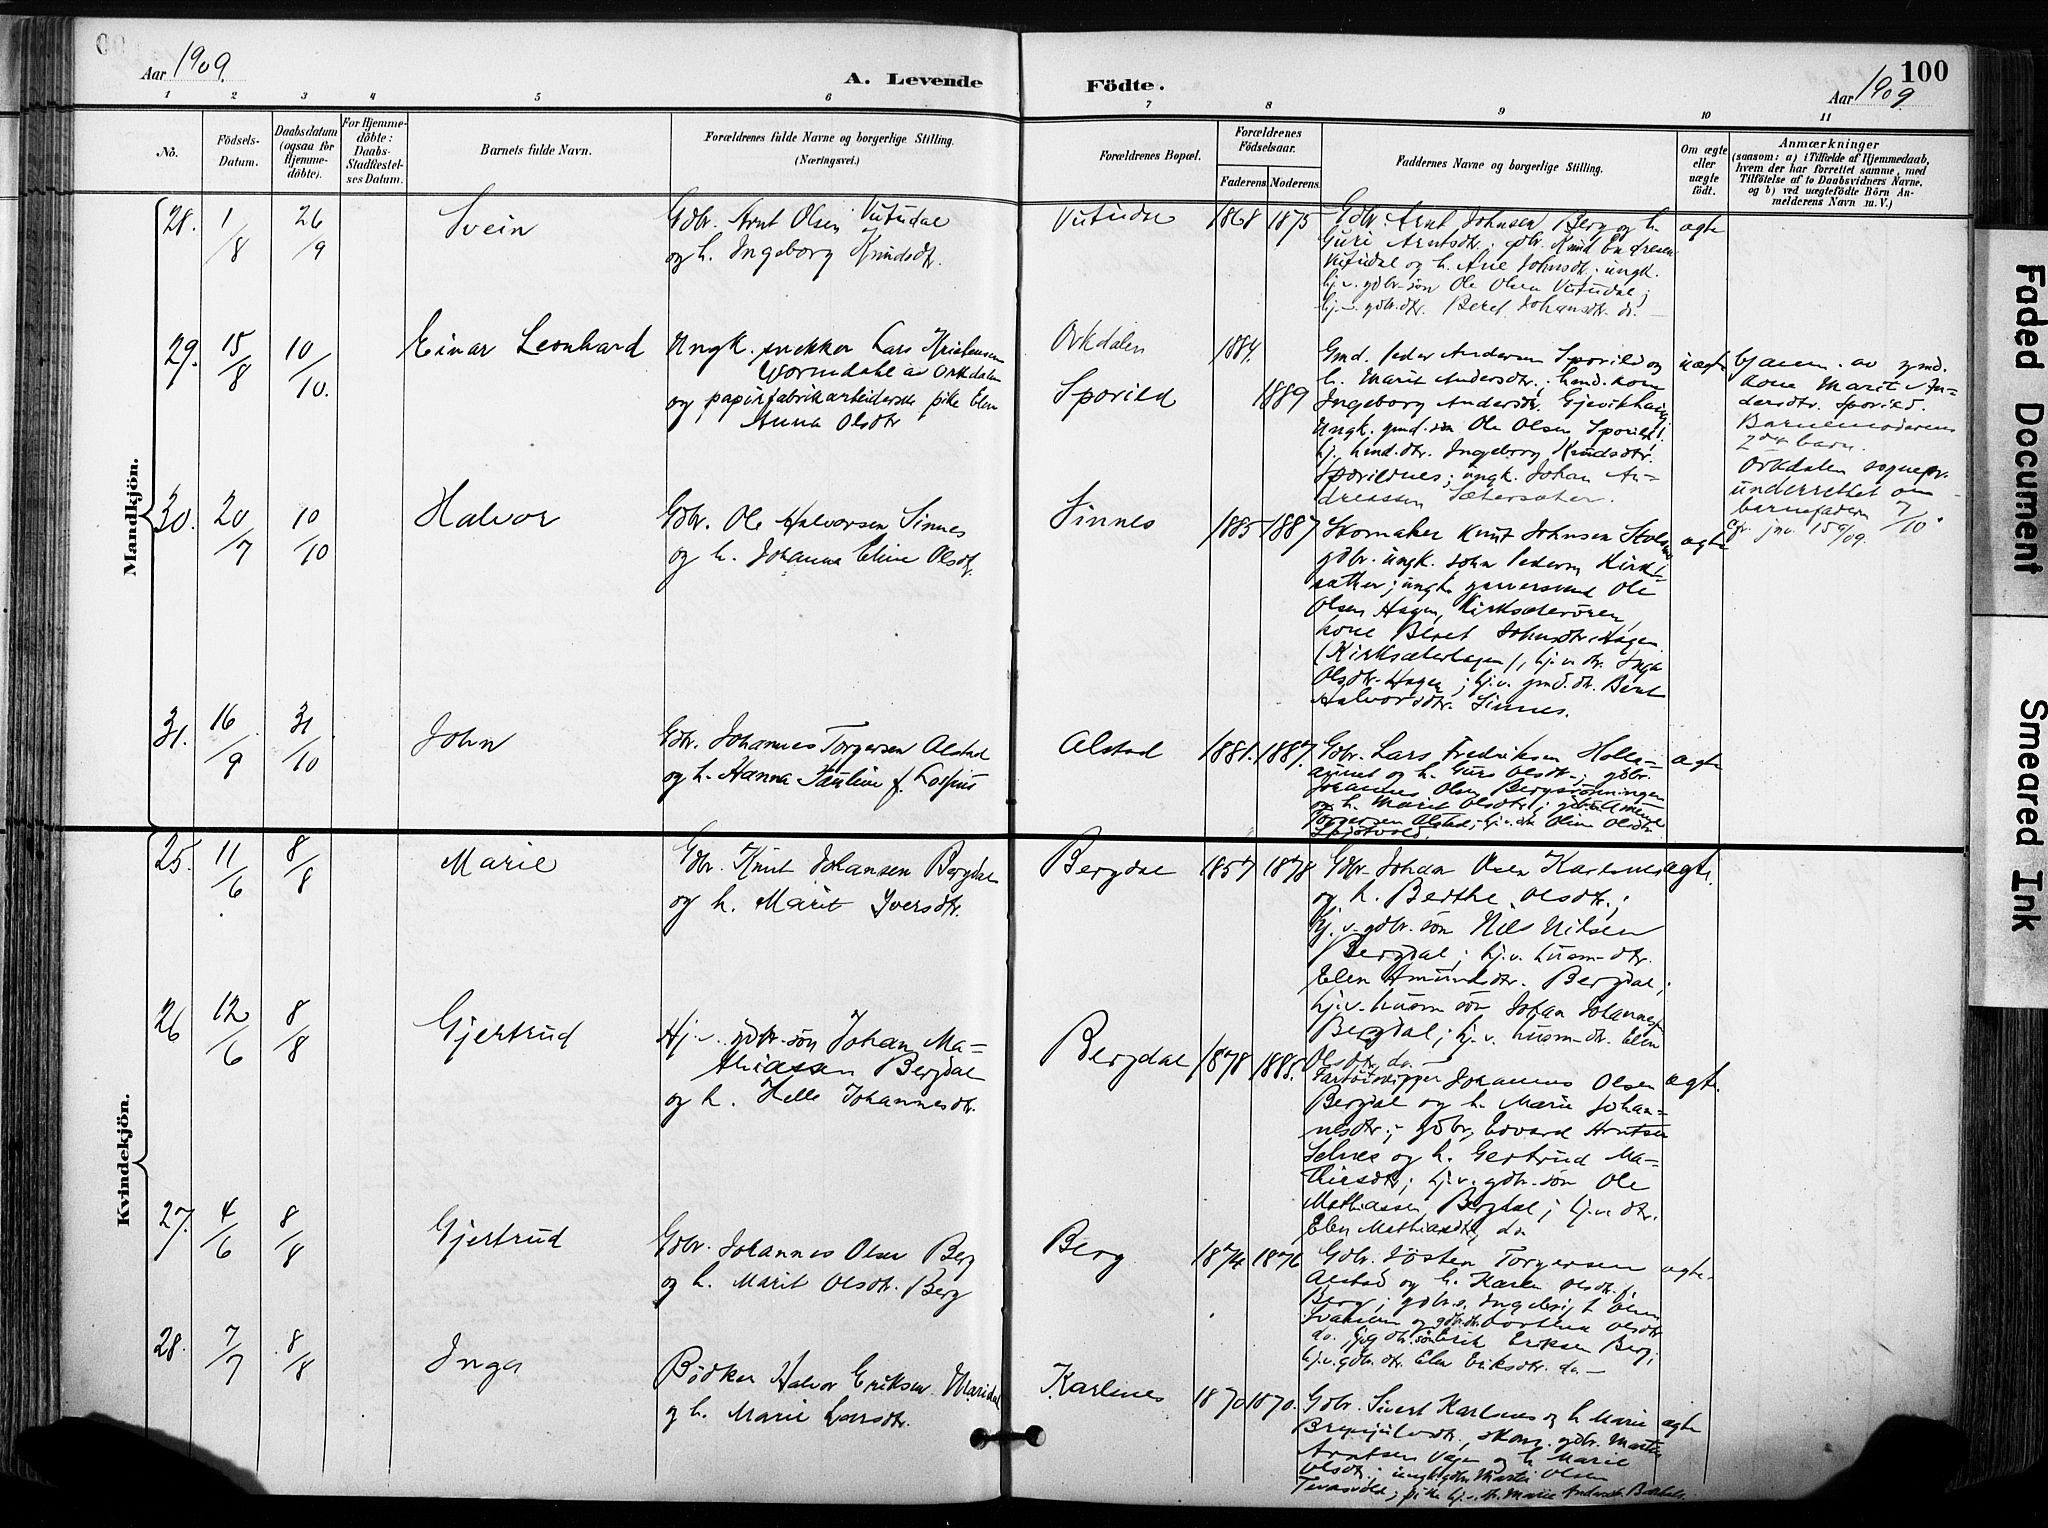 Aar 1909.
A. Levende
Födte.
100
Aar 1909
1 2 3 4 5 6 7 8 9 10 11
No.
Födsels-Datum.
Daabsdatum (ogsaa for Hjemme-döbte).
For Hjemme-döbte: Daabs-Stadfæstel-ses Datum.
Barnets fulde Navn.
Forældrenes fulde Navne og borgerlige Stilling. (Næringsvei.)
Forældrenes Bopæl.
Forældrenes Födselsaar.
Faderens. Moderens.
Faddernes Navne og borgerlige Stilling.
Om ægte eller uægte födt.
Anmærkninger
(saasom: a) i Tilfælde af Hjemmedaab, hvem der har forrettet samme, med Tilföielse af to Daabsvidners Navne, og b) ved uægtefödte Börn An-melderens Navn m. V.)
Mandkjön.
28. 1/8 26/9 Svein
Gdbr. Arnt Olsen Vutudal
og h. Ingeborg Knudsdtr.
Vutudal 1868 1875
Gdbr. Arnt Johnsen Berg og h.
Guri Arntsdtr.; gbr. Knud Endresen
Vutudal og h. Ane Johnsdtr.; ungk.
hj. v. gdbr-søn Ole Olsen Vutudal;
hj. v. gdbr.dtr. Beret Johansdtr. do. –
ægte
29. 15/8 10/10. Einar Leonhard
Ungk. snekker Lars Kristensen
Wormdahl av Orkdalen
og papirfabrikarbeiderske pike Elen
Anna Olsdtr
Orkdalen 1884.
Sporild 1889
Gmd. Peder Andersen Sporild og
h. Marit Andersdtr.; hmd. kone
Ingeborg Andersdtr. Gjevikhaug
Ungk. gmd.søn Ole Olsen Sporild;
hj. hmd.dtr. Ingeborg Knudsdtr.
Sporildnes; ungk. Johan An-
dreassen Sætersæter.
uægte
Gjanm. av gmd.
kone Marit An-
dersdtr. Sporild.
Barnemoderens
barn.
Orkdalen sognepr.
underrettet om
barnefaderen 7/10.
Cfr. jnr. 150/09.
30. 20/7 10/10 Halvor
Gdbr. Ole Halvorsen Sinnes
og h. Johanna Eline Olsdtr.
Sinnes 1885 1887
Skomaker Knut Johnsen
gdbr. ungk. John Pedersen Kirk-
sæther; ungk. garversvend Ole
Olsen Hagen, Kirksæterøren,
kone Beret Johnsdtr. Hagen
(Kirksæterhagen), hj. v. dtr. Inga
Olsdtr. Hagen; hj. v. gmd.dtr. Beret
Halvorsdtr. Sinnes.
ægte
31. 16/9 31/10 John
Gdbr. Johannes Torgersen Alstad
og h. Hanna Pauline f. Lossius
Alstad 1881. 1887.
Gdbr. Lars Fredriksen Holla-
og h. Guro Olsdtr.; gdbr.
Johannes Olsen
og h. Marit Olsdtr.;
Torgersen Alstad; hj. v. Olsdtr.
ægte
Kvindekjön.
25. 11/6 8/8 Marie
Gdbr. Knut Johansen Bergdal
og h. Marit Iversdtr.
Bergdal 1857 1878
Gdbr. Johan Olsen Karlsnes
og h. Berthe Olsdtr.;
hj. v. gdbr. søn Nils Nilsen
Bergdal; hj. v. husm-dtr.
Elen Amundsdtr. Bergdal;
hj. v. husm søn Johan Johannes.
Bergdal; hj. v. husm-dtr. Elen
Olsdtr. do.
ægte.
26 12/6 8/8 Gjertrud
Hj. v. gdbr-søn Johan Ma-
thiassen Bergdal
og h. Helle Johannesdtr.
Bergdal 1878 1885.
Fartøiskipper Johannes Olsen
Bergdal og h. Marie Johan-
nesdtr.; gdbr. Edvard Arntsen
Selnes og h. Gertrud Ma-
thisdtr.; hj. v. gdbr-søn Ole
Mathiassen Bergdal; hj. v. dtr.
Elen Mathiasdtr. do
ægte.
27. 4/6 8/8 Gjertrud
Gdbr. Johannes Olsen Berg
og h. Marit Olsdtr. Berg
Berg 1874 1876
Gdbr. Jøsten Torgersen
Alstad og h. Karen Olsdtr.;
Berg;
og Dorthea Olsdtr
do. søn Erik Eriksen Berg;
hj. v. gdbr. dtr. Elen Eriksdtr. do –
ægte.
28. 7/7 8/8 Inga
Bødker Halvor Eriksen Mæridal
og h. Marie Larsdtr.
Karlsnes 1870 1870.
Gdbr. Sivert Karlsnes og h. Marie
Brynjulvsdtr.; gdbr. Martin
Arntsen og h. Marie
Olsdtr.; ungk. gdbr. Olsen
pike hj. v. dtr. Marie Andersdtr.
ægte
Faded Document
Smeared Ink